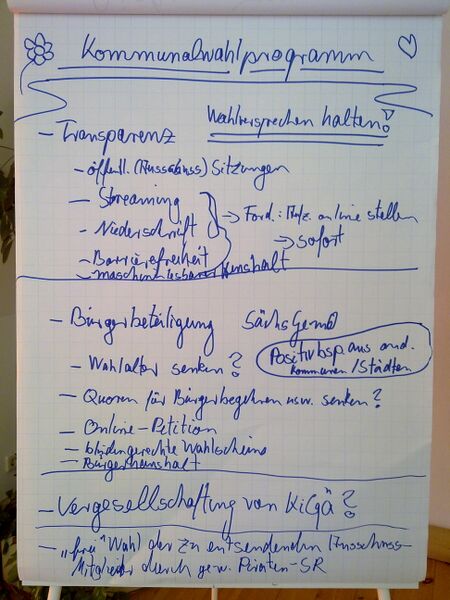 Kommunalwahlprogramm
Wahlversprechen halten!
- Transparenz
- öffentl. (Ausschuss) Sitzungen
- Streaming
- Niederschrift
→ Ford.: online stellen
→ sofort
- Barrierefreiheit
- maschinenlesbarer Haushalt
- Bürgerbeteiligung SächsGemO
Positivbsp. aus and.
Kommunen/Städten
- Wahlalter senken?
- Quoren für Bürgerbegehren usw. senken?
- Online-Petition
- blindengerechte Wahlscheine
- Bürgerhaushalt
- Vergesellschaftung von KiGä?
- „frei" Wahl der zu entsendenden Ausschuss-
Mitglieder durch gew. Piraten-SR